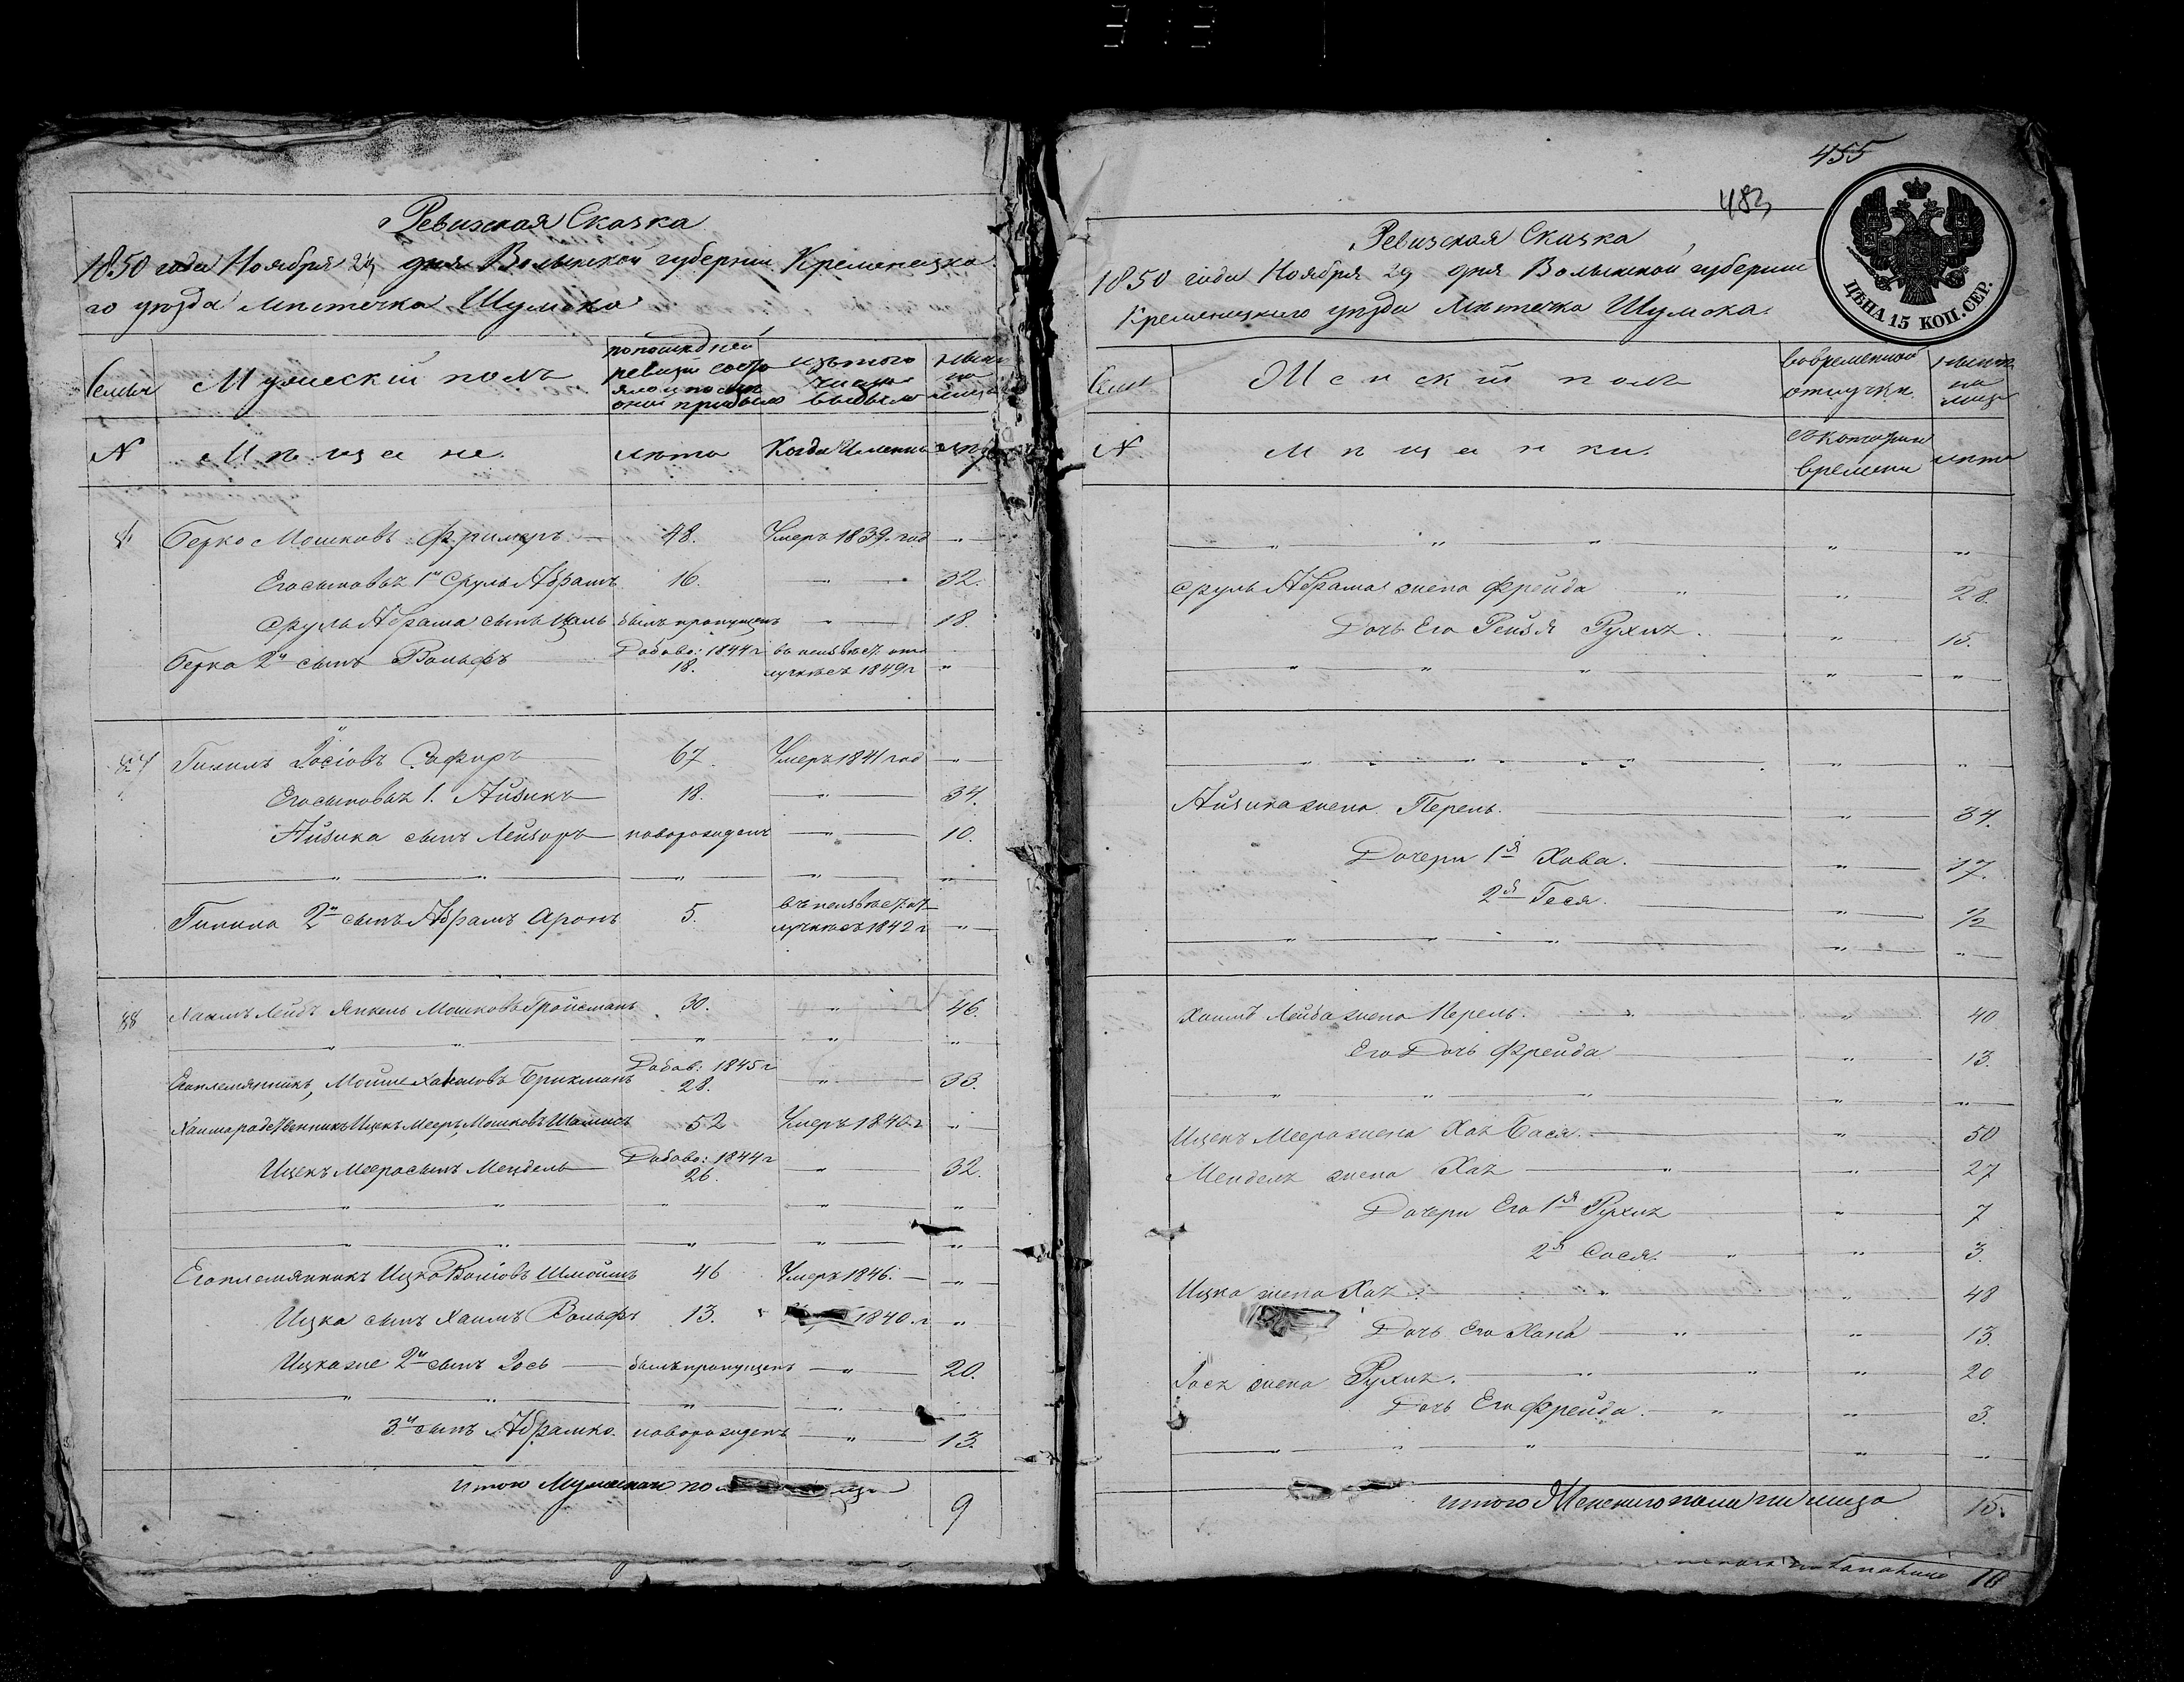 Ревизская Сказка
1850 года Ноября 29 дня Волынской губернии Кременецка
го уѣзда мѣстечка Шумска
Семьи Мужеский полъ по последней ревизіи состо яло и послѣ оной прибыло изъ того числа выбыло нынѣ на лицо
N Мѣщане лѣта Когда Именно лѣта
Берко Мошковъ Фримеръ 48. Умеръ 1839 год
Его сыновья 1й Сруль Абрамъ 16. 32.
Сруль Абрама сынъ былъ пропущенъ 18
Берка 2й сынъ Вольфъ Добаво: 1844 г 18. въ неизвѣст. отлучкѣ съ 1849 г
Гилилъ Іосіовъ Сафиръ 67. Умеръ 1841 год
Его сыновья 1. Айзикъ 18. 34.
Айзика сынъ Лейзоръ новорожденъ 10.
Гилила 2й сынъ Абрамъ Аронъ 5. въ неизвѣст. отлучкѣ съ 1842 г
88 Хаимъ Лейбъ Янкель Мошковъ Гройсманъ 30. 46.
Его племянникъ, Мошие Хаимовъ Брикманъ Добав: 1845 г 28. 33.
Хаима родственникъ Ицекъ Мееръ Мошковъ Шамисъ 52 Умеръ 1840 г
Ицекъ Меера сынъ Мендель Добаво: 1844 г 26. 32.
Его племянникъ Ицко 46 Умеръ 1846.
Ицка сынъ Хаимъ Вольфъ 13. 1840. г
Ицка же 2й сынъ Іось былъ пропущенъ 20.
3й сынъ Абрамко новорожденъ 13.
итого Мужескаго по 9
455
483
ЦѢНА 15 КОП. СЕР.
Ревизская Сказка
1850 года Ноября 29 дня Волынской губернии
Кременецкаго уѣзда мѣстечка Шумска.
Семьи Женский полъ во временной отлучкѣ нынѣ на лицо
N Мѣщанки. съ котораго времени лѣта
Сруль Абрама жена Фрейда 28.
Дочь Его Рейзя Рухля. 15.
Айзика жена Перель. 34.
Дочери 1я Хова. 17.
2я Геся. 1/2
Хаимъ Лейба жена Перель. 40
Его Дочь Фрейда 13.
Ицекъ Меера жена Хая Бася. 50
Менделя жена Хая 27
Дочери Его 1я Рухля 7
2я Сося. 3.
Ицка жена Хая 48
Дочь Его Хана 13.
Іося жена Рухля. 20
Дочь Его Фрейда. 3.
итого Женскаго пола на лицо 15.